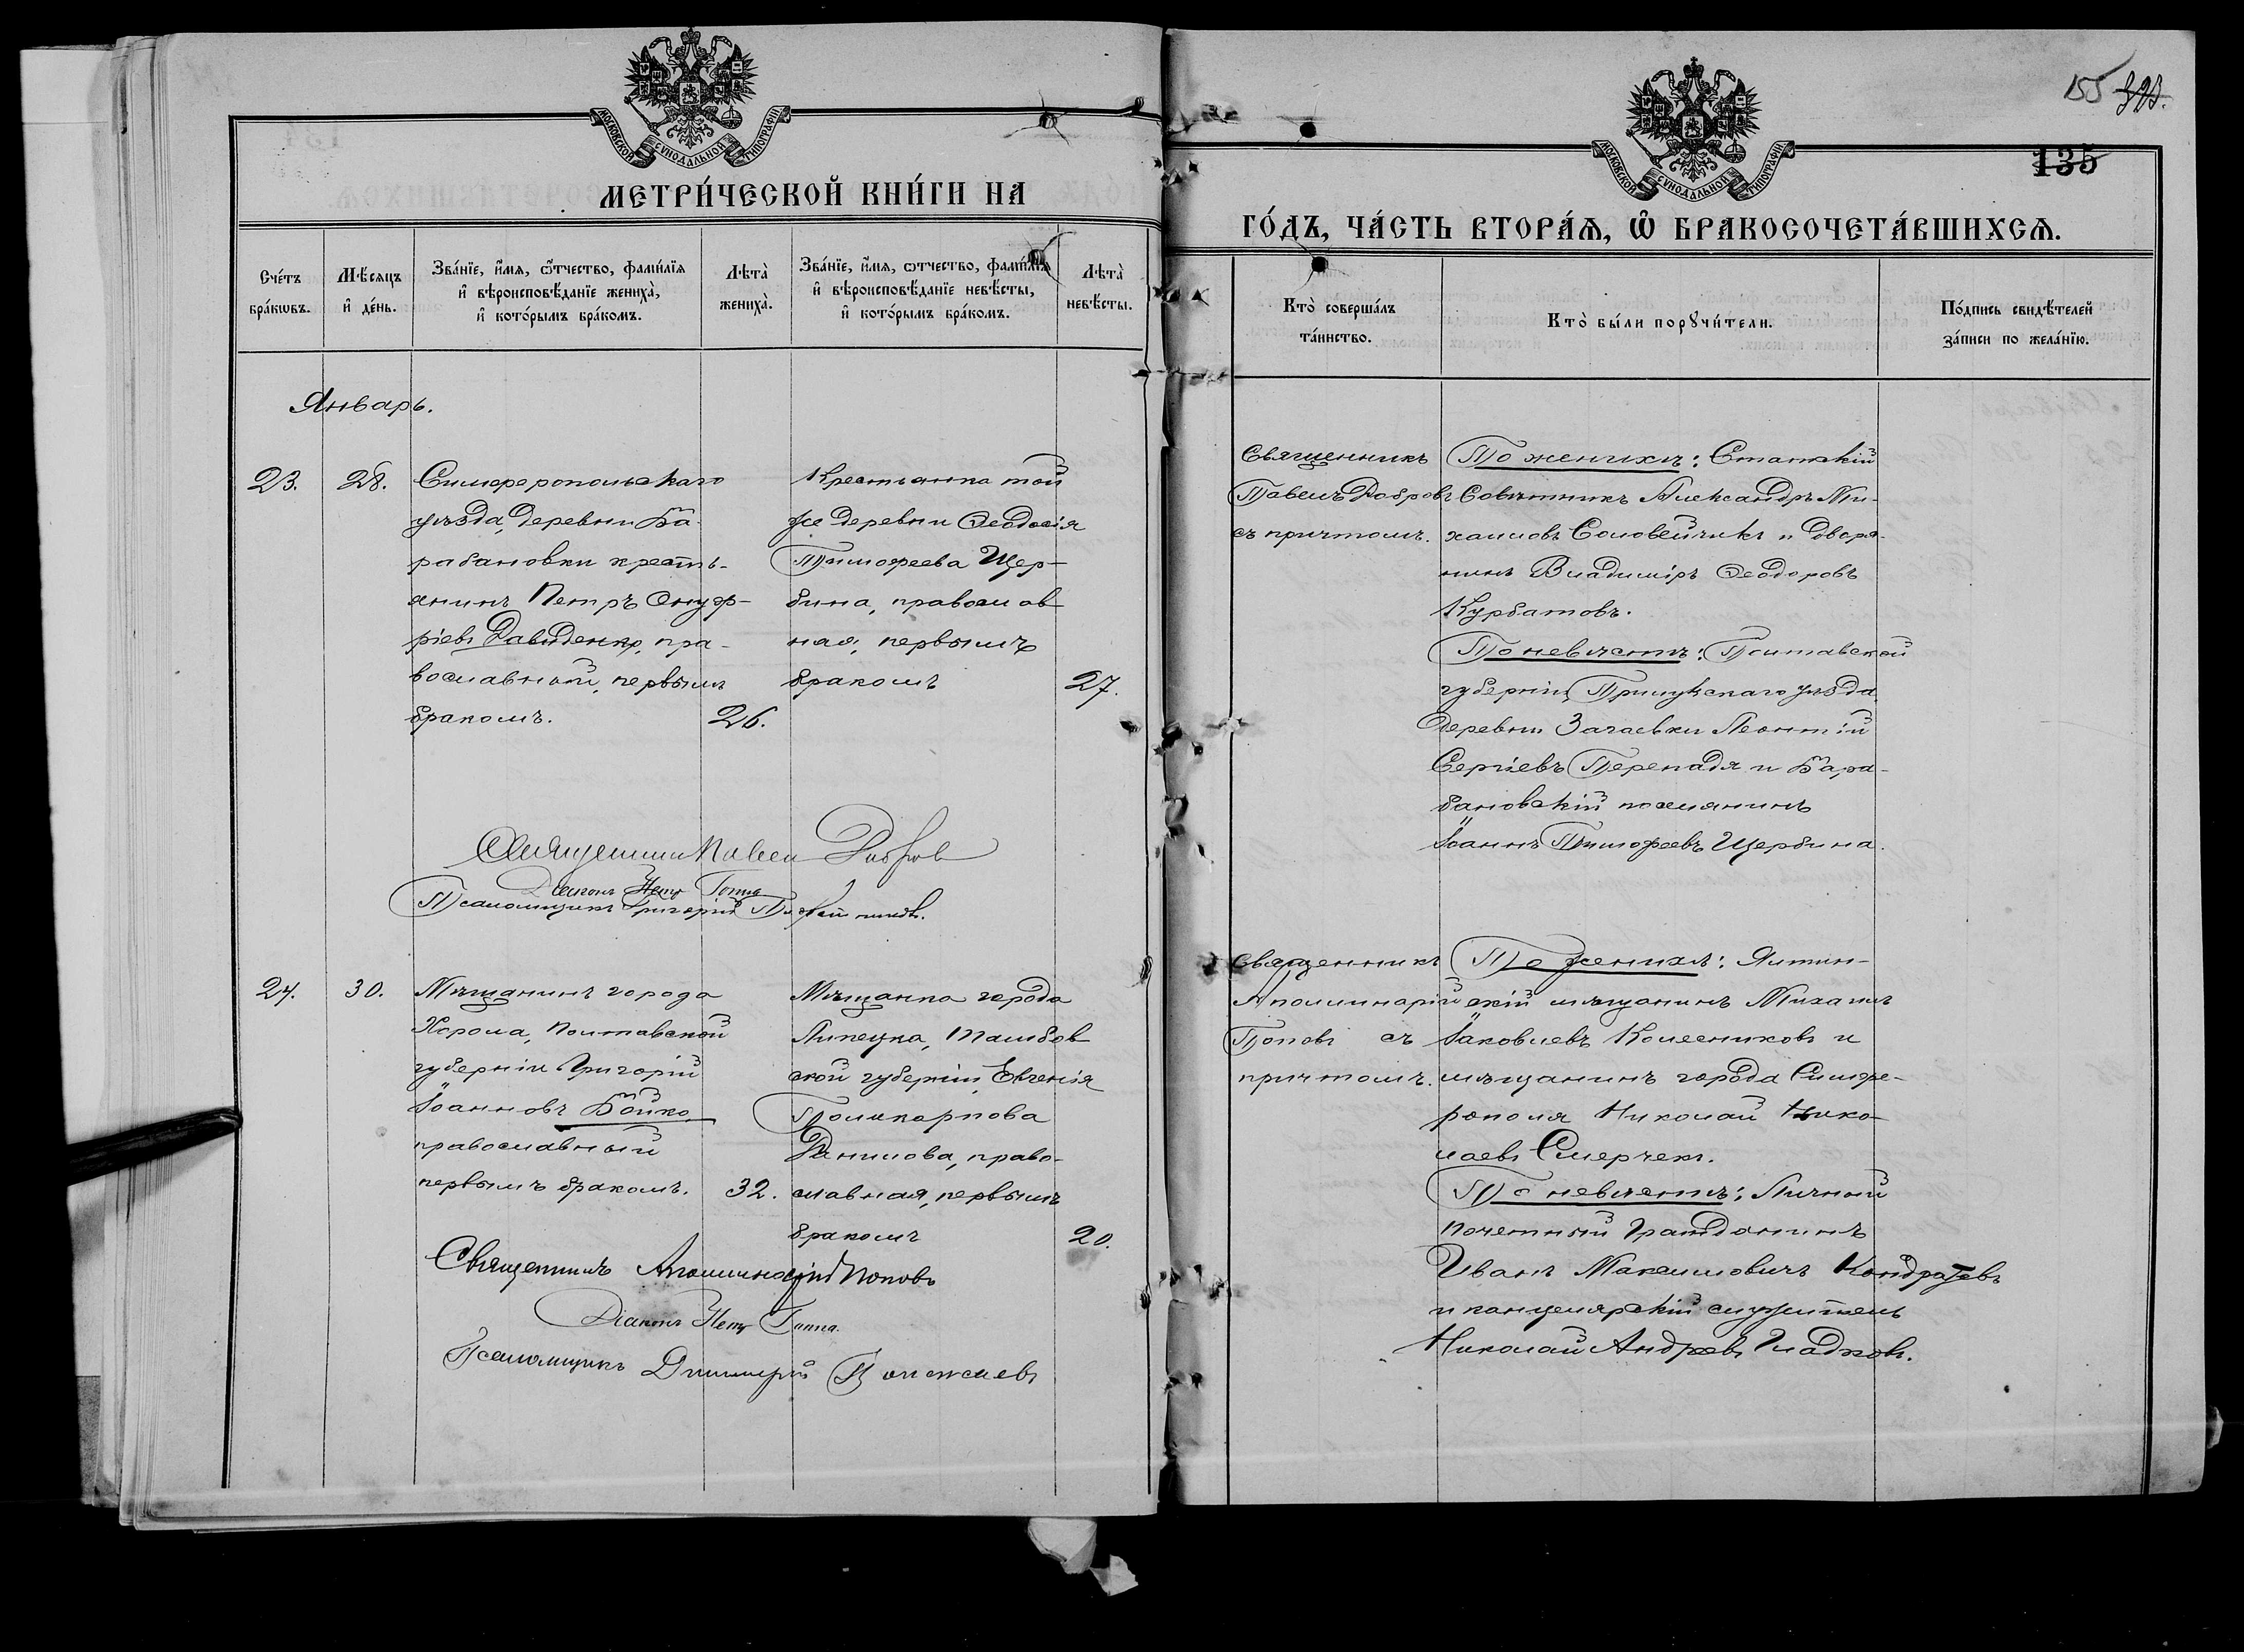 МОСКОВСКОЙ СѴНОДАЛЬНОЙ ТИПОГРАФІИ
МЕТРИ́ЧЕСКОЙ КНИ́ГИ НА
Сче́тъ бра́кѡвъ.
Мѣ́сяцъ и҆ де́нь.
Зва́нїе, и҆́мя, ѻ҆́тчество, фами́лїя
и҆ вѣроисповѣ́данїе жениха̀,
и҆ кото́рымъ бра́комъ.
Лѣта̀ жениха̀.
Зва́нїе, и҆́мя, ѻ҆́тчество, фами́лїя
и҆ вѣроисповѣ́данїе невѣ́сты,
и҆ кото́рымъ бра́комъ.
Лѣта̀ невѣ́сты.
Январь.
23.
28.
Симферопольскаго
уѣзда, деревни Ба-
рабановки кресть-
янинъ Петръ Онуф-
ріевъ Давиденко, пра-
вославный, первымъ
бракомъ.
26.
Крестьянка той
же деревни Ѳеодосія
Тимоѳеева Щер-
бина, православ
ная, первымъ
бракомъ
27.
Священникъ Павелъ Добровъ
Діаконъ Петръ
Псаломщикъ Григорій
24.
30.
Мѣщанинъ города
Хорола, Полтавской
губерніи Григорій
Іоанновъ Бойко
православный
первымъ бракомъ.
32.
Мѣщанка города
Липецка, Тамбов
ской губерніи, Евгенія
Поликарпова
Данилова, право-
славная, первымъ
бракомъ
20.
Священникъ Аполлинарій Поповъ
Діаконъ Петръ
Псаломщикъ Димитрій
155
135
МОСКОВСКОЙ СѴНОДАЛЬНОЙ ТИПОГРАФІИ
ГО́ДЪ, ЧА́СТЬ ВТОРА́Ѧ, Ѽ БРАКОСОЧЕТА́ВШИХСѦ.
Кто̀ соверша́лъ
та́инство.
Кто̀ бы́ли порꙋчи́тели.
По́дпись свидѣ́телей
за́писи по жела́нїю.
Священникъ
Павелъ Добровъ
съ причтомъ.
По женихѣ: Статскій
Совѣтникъ Александръ Ми-
хаиловъ Соловейчикъ и дворя-
нинъ Владиміръ Ѳеодоровъ
Курбатовъ.
По невѣстѣ: Полтавской
губерніи, Прилукскаго уѣзда
деревни Леонтій
Сергіевъ Перепадя и Бара-
бановскій поселянинъ
Іоаннъ Тимоѳеевъ Щербина.
Священникъ
Аполлинарій
Поповъ съ
причтомъ.
По женихѣ: Ялтин-
скій мѣщанинъ Михаилъ
Іаковлевъ Колесниковъ и
мѣщанинъ города Симфе-
рополя Николай Нико-
лаевъ Смерчекъ.
По невѣстѣ: Личный
почетный гражданинъ
Иванъ Максимовичъ Кондратьевъ
и канцелярскій служитель
Николай Андреевъ Гладковъ.